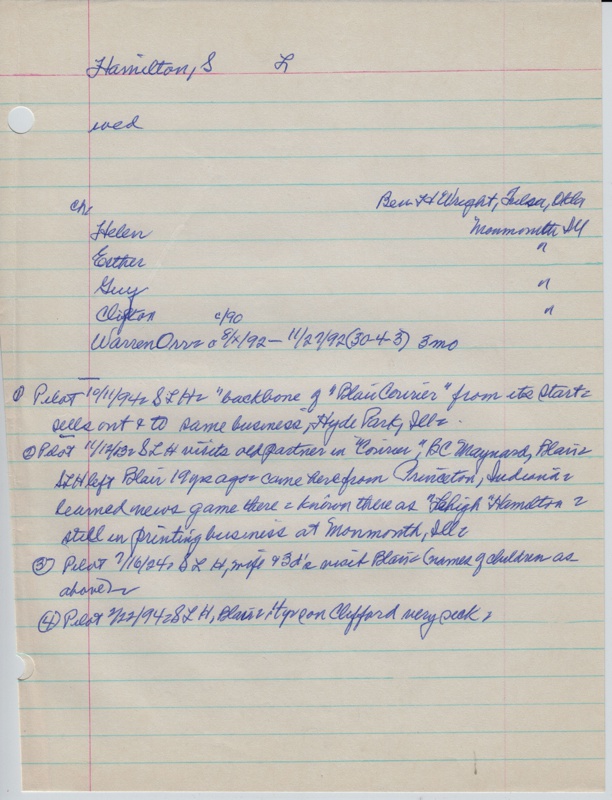 Hamilton, S L
wed
ch: Ben H Wright, Tulsa, Okla
Helen Monmouth Ill
Esther "
Guy "
Clifton c/90 "
Warren Orr= o 8/x/92 — 11/27/92 (30-4-3) 3mo
① Pilot 10/11/94= S L H= "backbone of "Blair Courier" from its start=
sells out & to same business", Hyde Park, Ill=
② Pilot 11/12/13= S L H visits old partner in "Courier", B C Maynard, Blair=
S L H left Blair 19 yrs ago= came here from Princeton, Indiana=
learned news game there= known there as "Lehigh" Hamilton=
still in printing business at Monmouth, Ill=
③ Pilot 7/16/24= S L H, wife & 3 d's visit Blair= (names of children as
above)=
④ Pilot 2/22/94= S L H, Blair= 4yr son Clifford very sick=